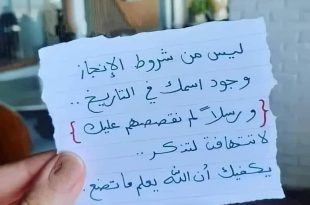 ليس من شروط الإنجاز
وجود اسمك في التاريخ ..
{ ورسلاً لم نقصصهم عليك }
لا تتهافت لتذكر ..
يكفيك أن الله يعلم ما تصنع